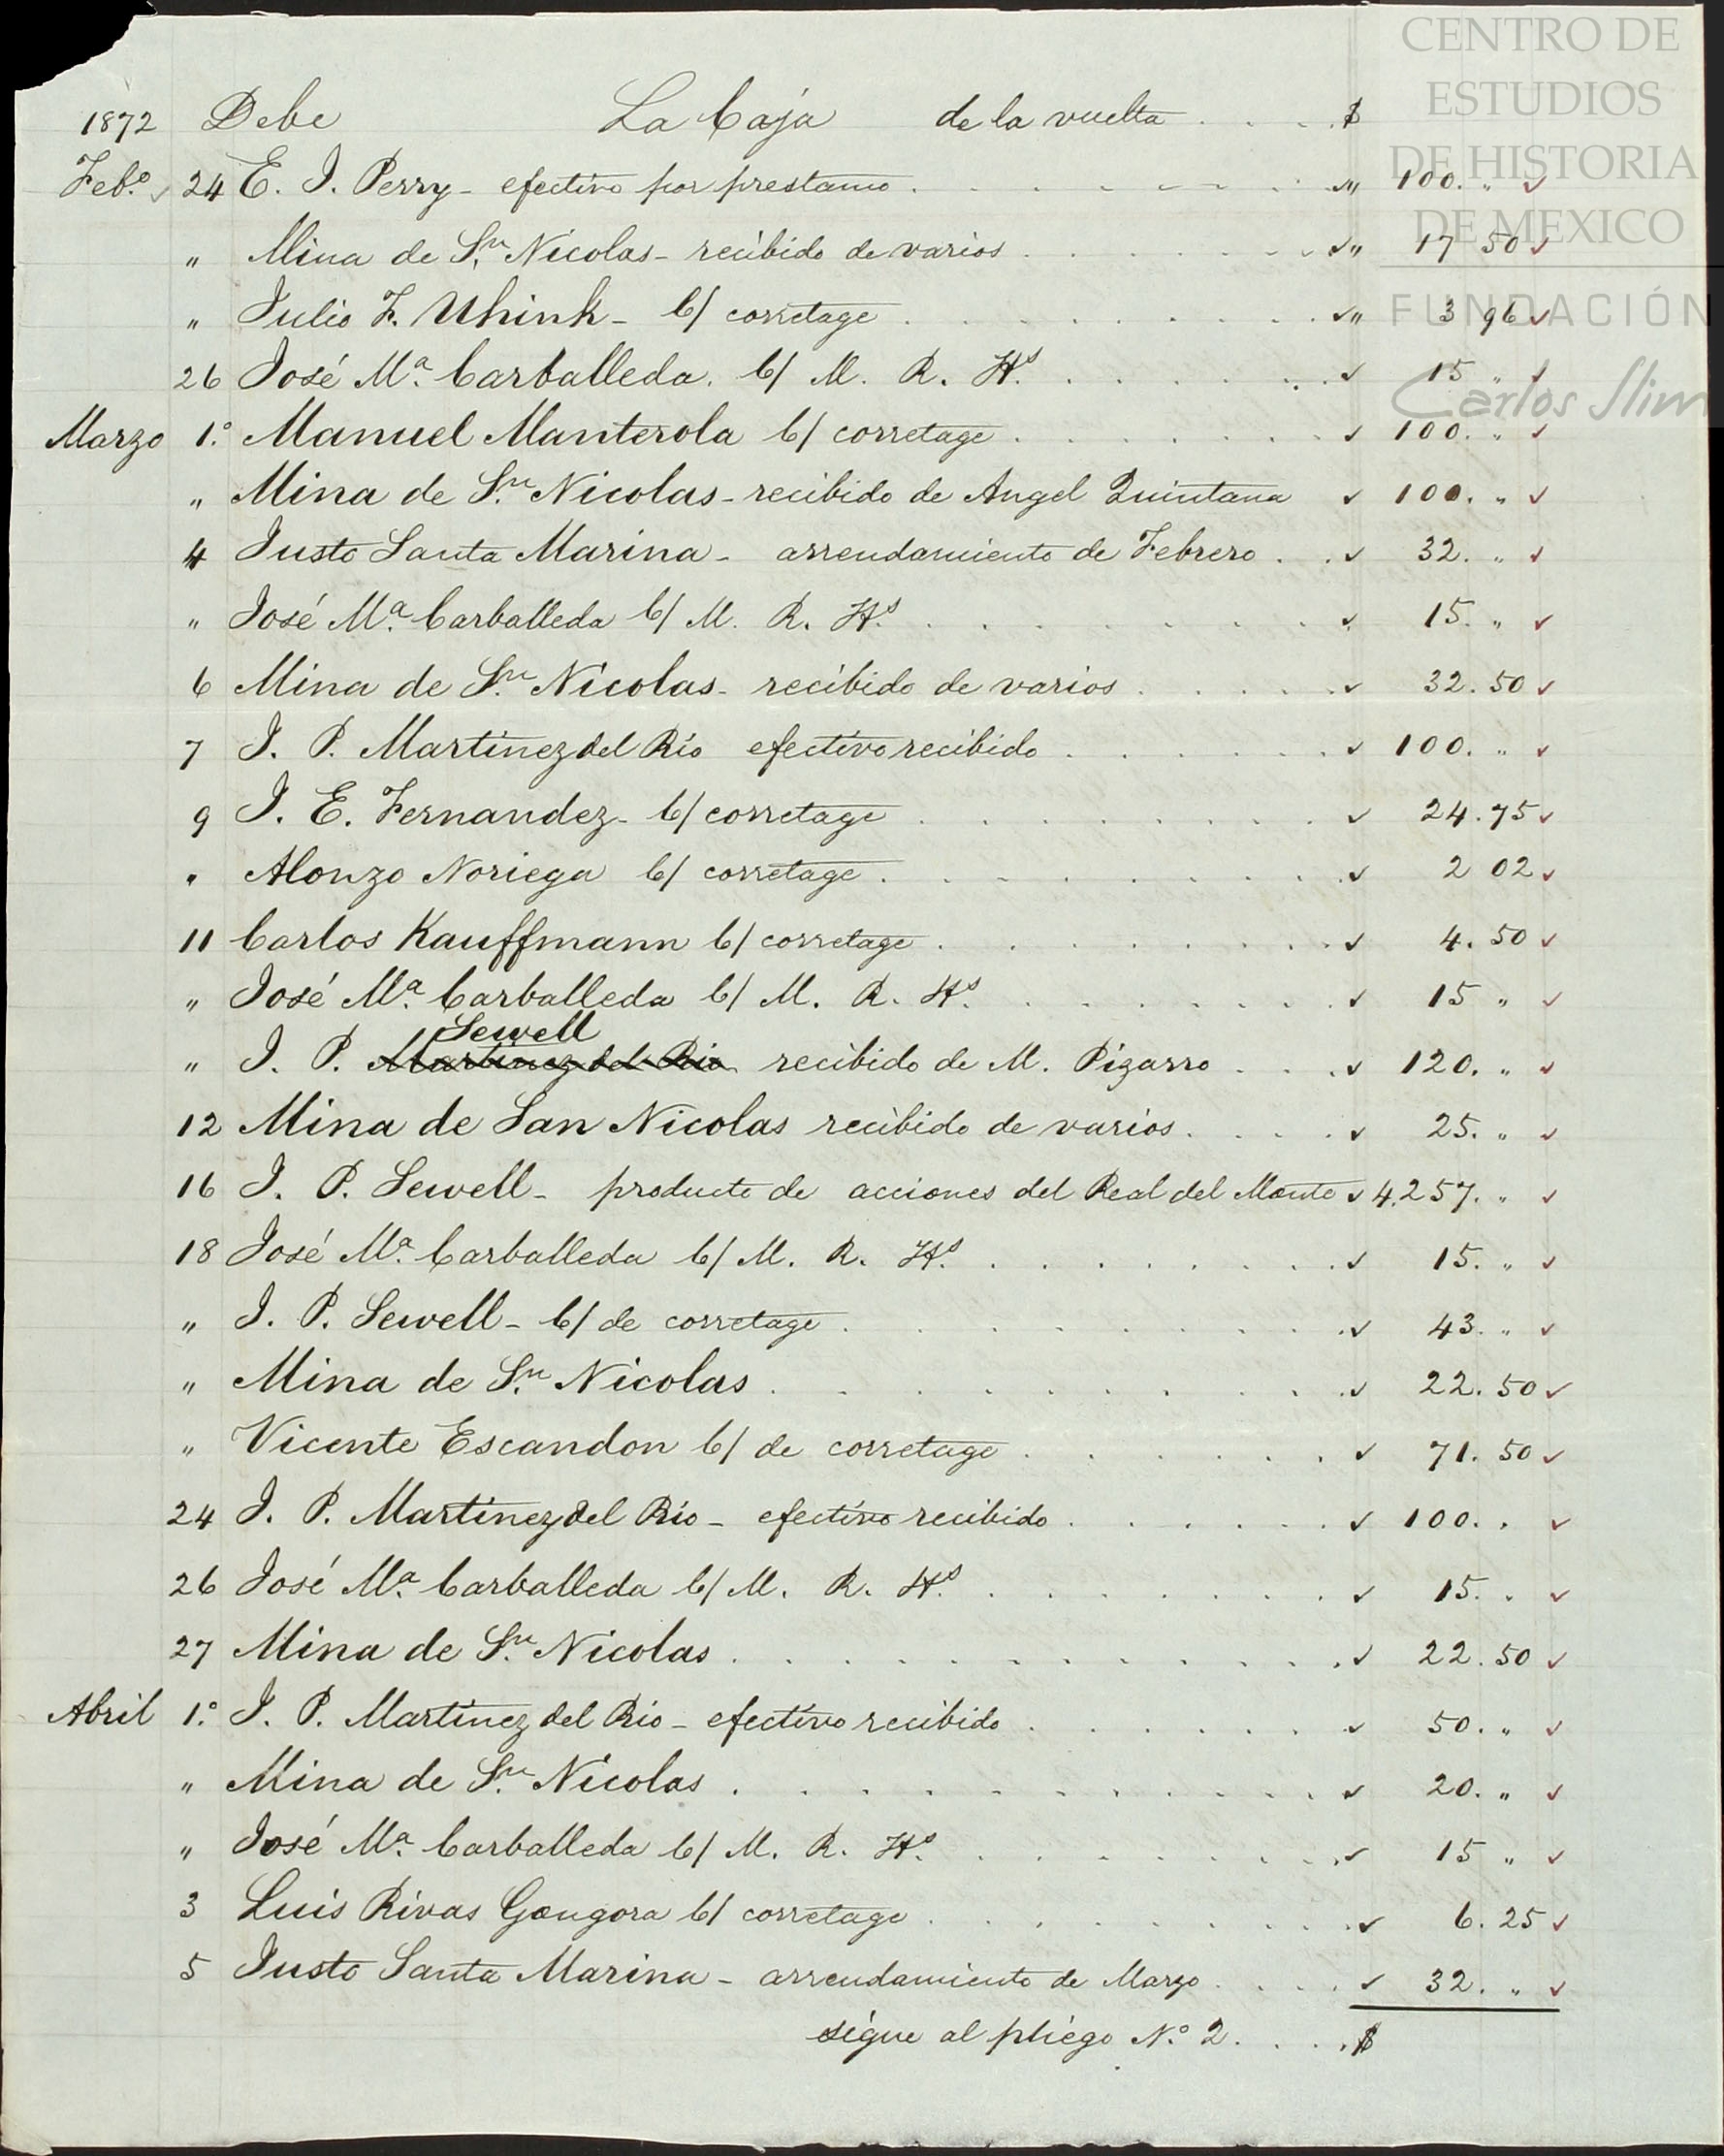 CENTRO DE
ESTUDIOS
DE HISTORIA
DE MEXICO
FUNDACIÓN
Carlos Slim
1872 Debe La Caja de la vuelta . . . . $
Feb.º 24 E. J. Perry - efectivo por prestamo . . . . " 100. "
" Mina de S.n Nicolas - recibido de varios . . . . " 17 50
" Julio F. Uhink - C/ corretage . . . . " 3 96
26 José M.a Carballeda. C/ M. R. H.s . . . . 15 "
Marzo 1.º Manuel Manterola C/ corretage . . . . 100. "
" Mina de S.n Nicolas - recibido de Angel Quintana 100. "
4 Justo Santa Marina - arrendamiento de Febrero . . 32. "
" José M.a Carballeda C/ M. R. H.s . . . . 15. "
6 Mina de S.n Nicolas - recibido de varios . . . . 32. 50
7 J. P. Martinez del Rio efectivo recibido . . . . 100. "
9 J. E. Fernandez - C/ corretage . . . . 24. 75
" Alonzo Noriega C/ corretage . . . . 2 02
11 Carlos Kauffmann C/ corretage . . . . 4. 50
" José M.a Carballeda C/ M. R. H.s . . . . 15 "
Sewell
" J. P. Martinez del Rio recibido de M. Pizarro . . . 120. "
12 Mina de San Nicolas recibido de varios . . . . 25. "
16 J. P. Sewell - producto de acciones del Real del Monte 4.257. "
18 José M.a Carballeda C/ M. R. H.s . . . . 15. "
" J. P. Sewell - C/ de corretage . . . . 43. "
" Mina de S.n Nicolas . . . . 22. 50
" Vicente Escandon C/ de corretage . . . . 71. 50
24 J. P. Martinez del Rio - efectivo recibido . . . . 100. .
26 José M.a Carballeda C/ M. R. H.s . . . . 15. .
27 Mina de S.n Nicolas . . . . 22. 50
Abril 1.º J. P. Martinez del Rio - efectivo recibido . . . . 50. "
" Mina de S.n Nicolas . . . . 20. "
" José M.a Carballeda C/ M. R. H.s . . . . 15 "
3 Luis Rivas Gongora C/ corretage . . . . 6. 25
5 Justo Santa Marina - arrendamiento de Marzo . . . . 32. "
sigue al pliego N.º 2. . . . $